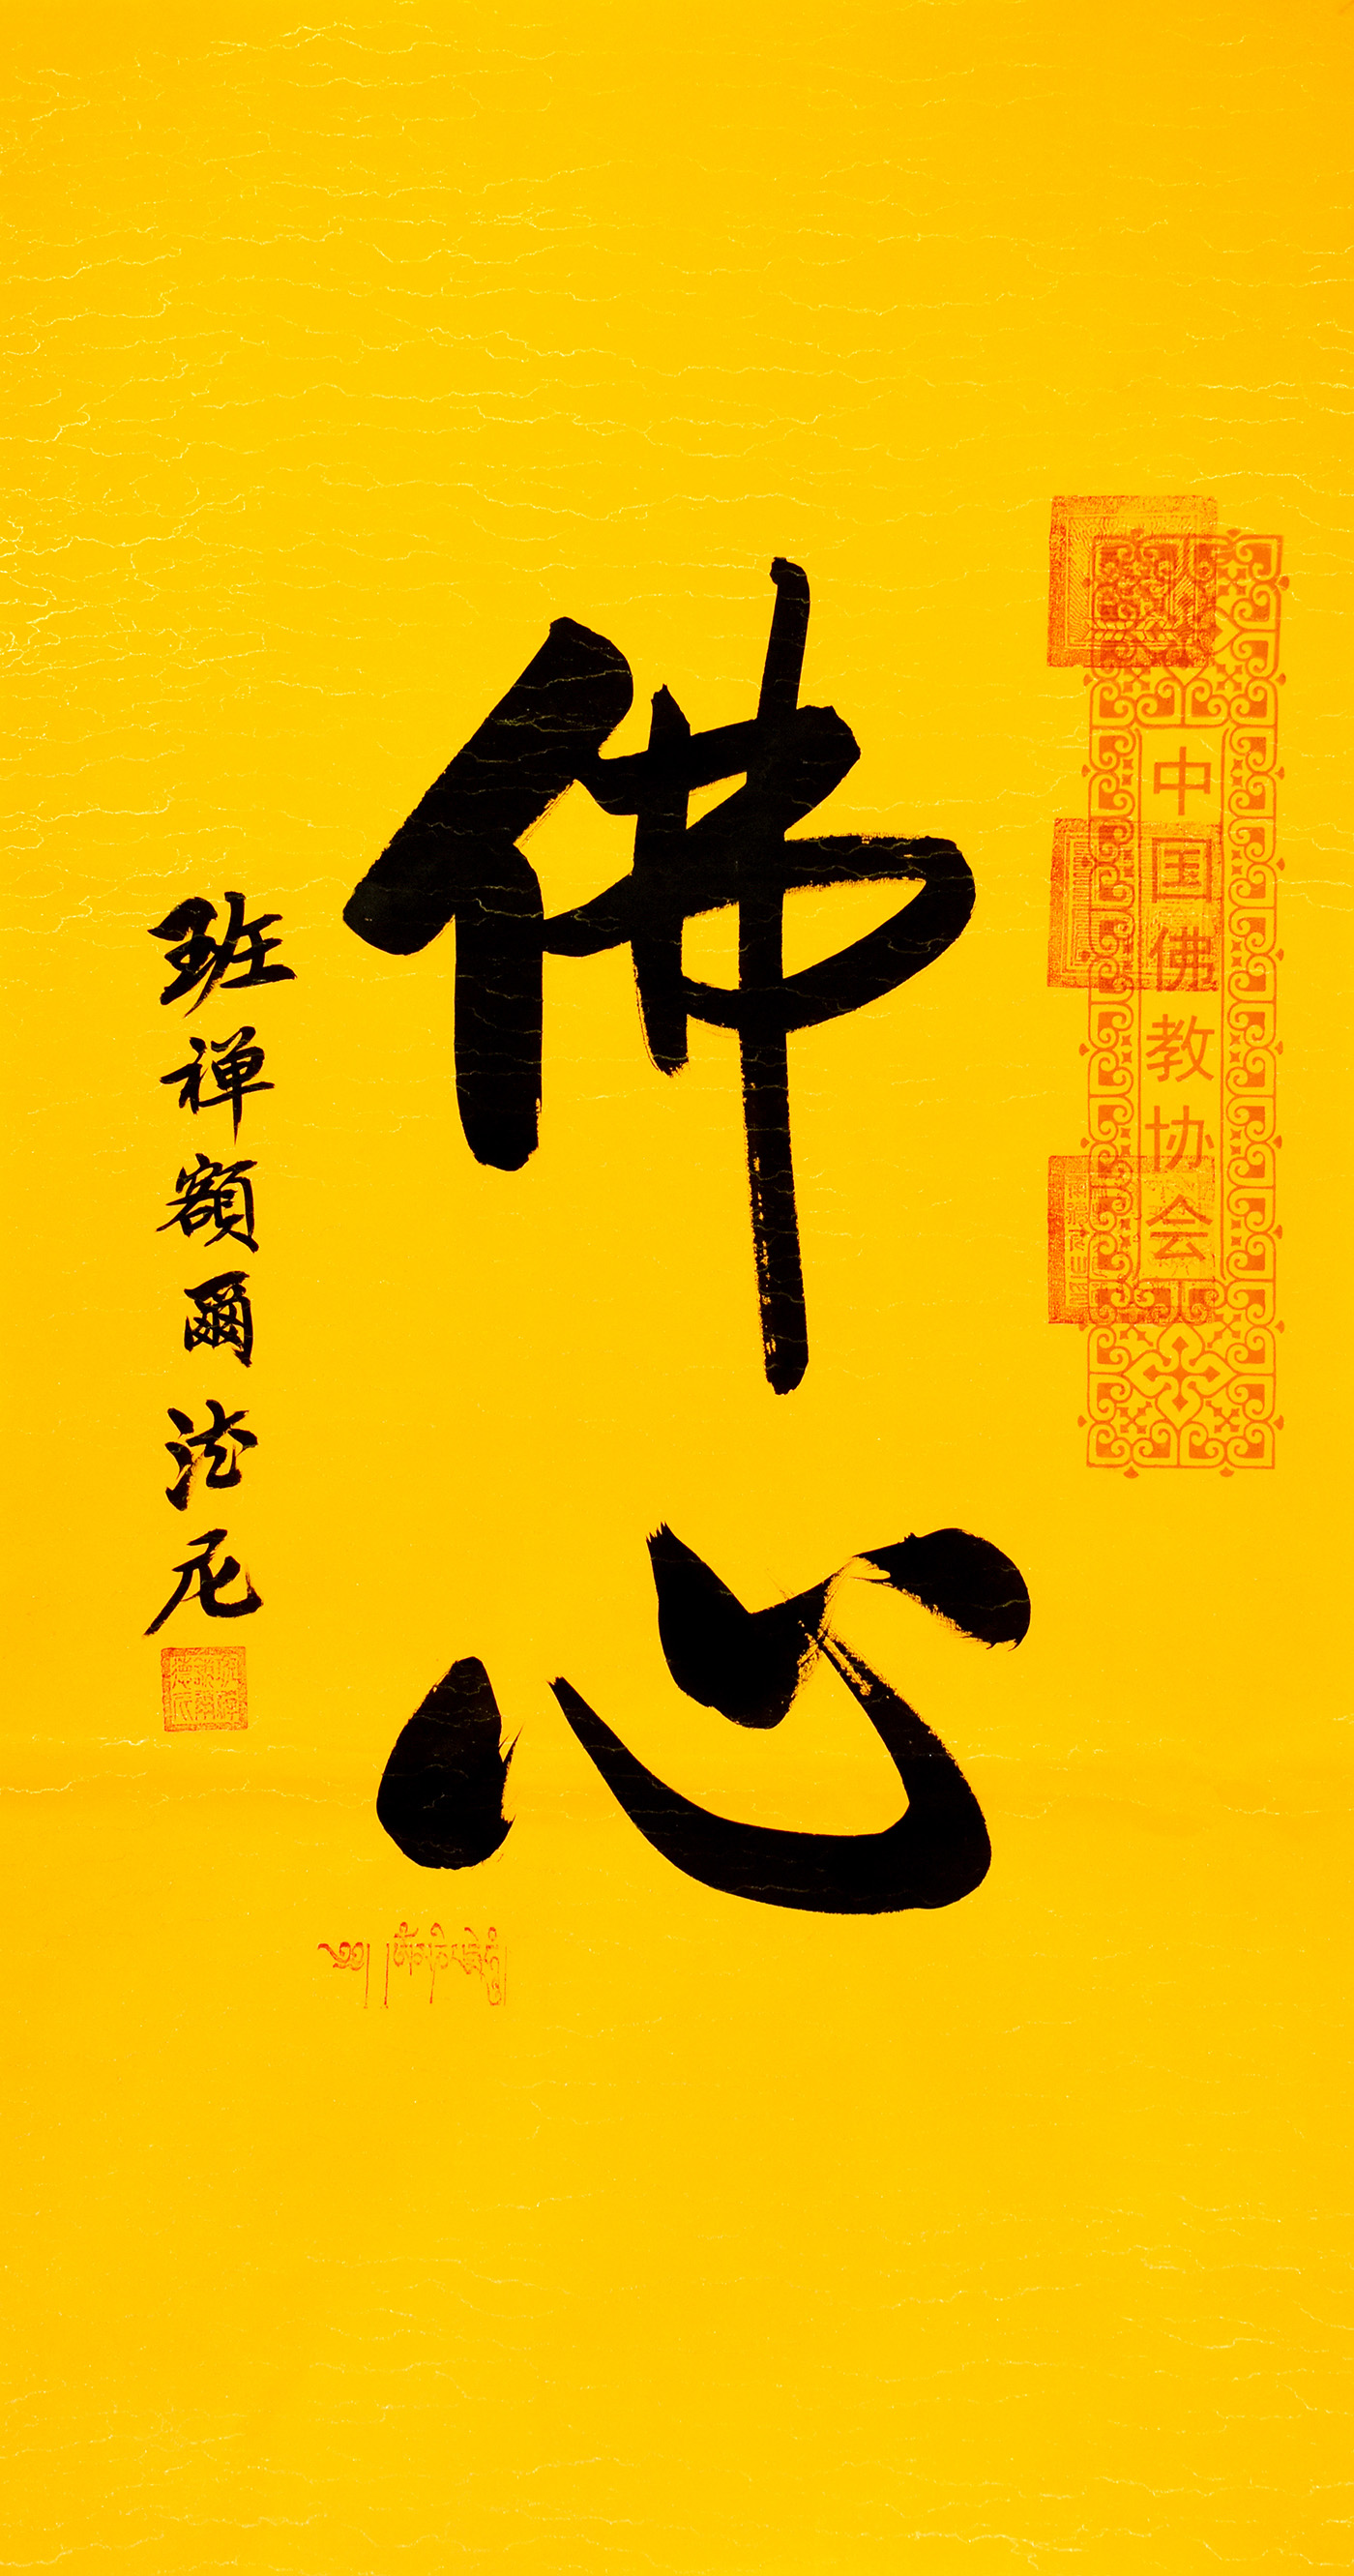 中国佛教协会
佛心
班禅額爾德尼
༄༅། །ཨོཾ་མ་ཎི་པདྨེ་ཧཱུྃ།